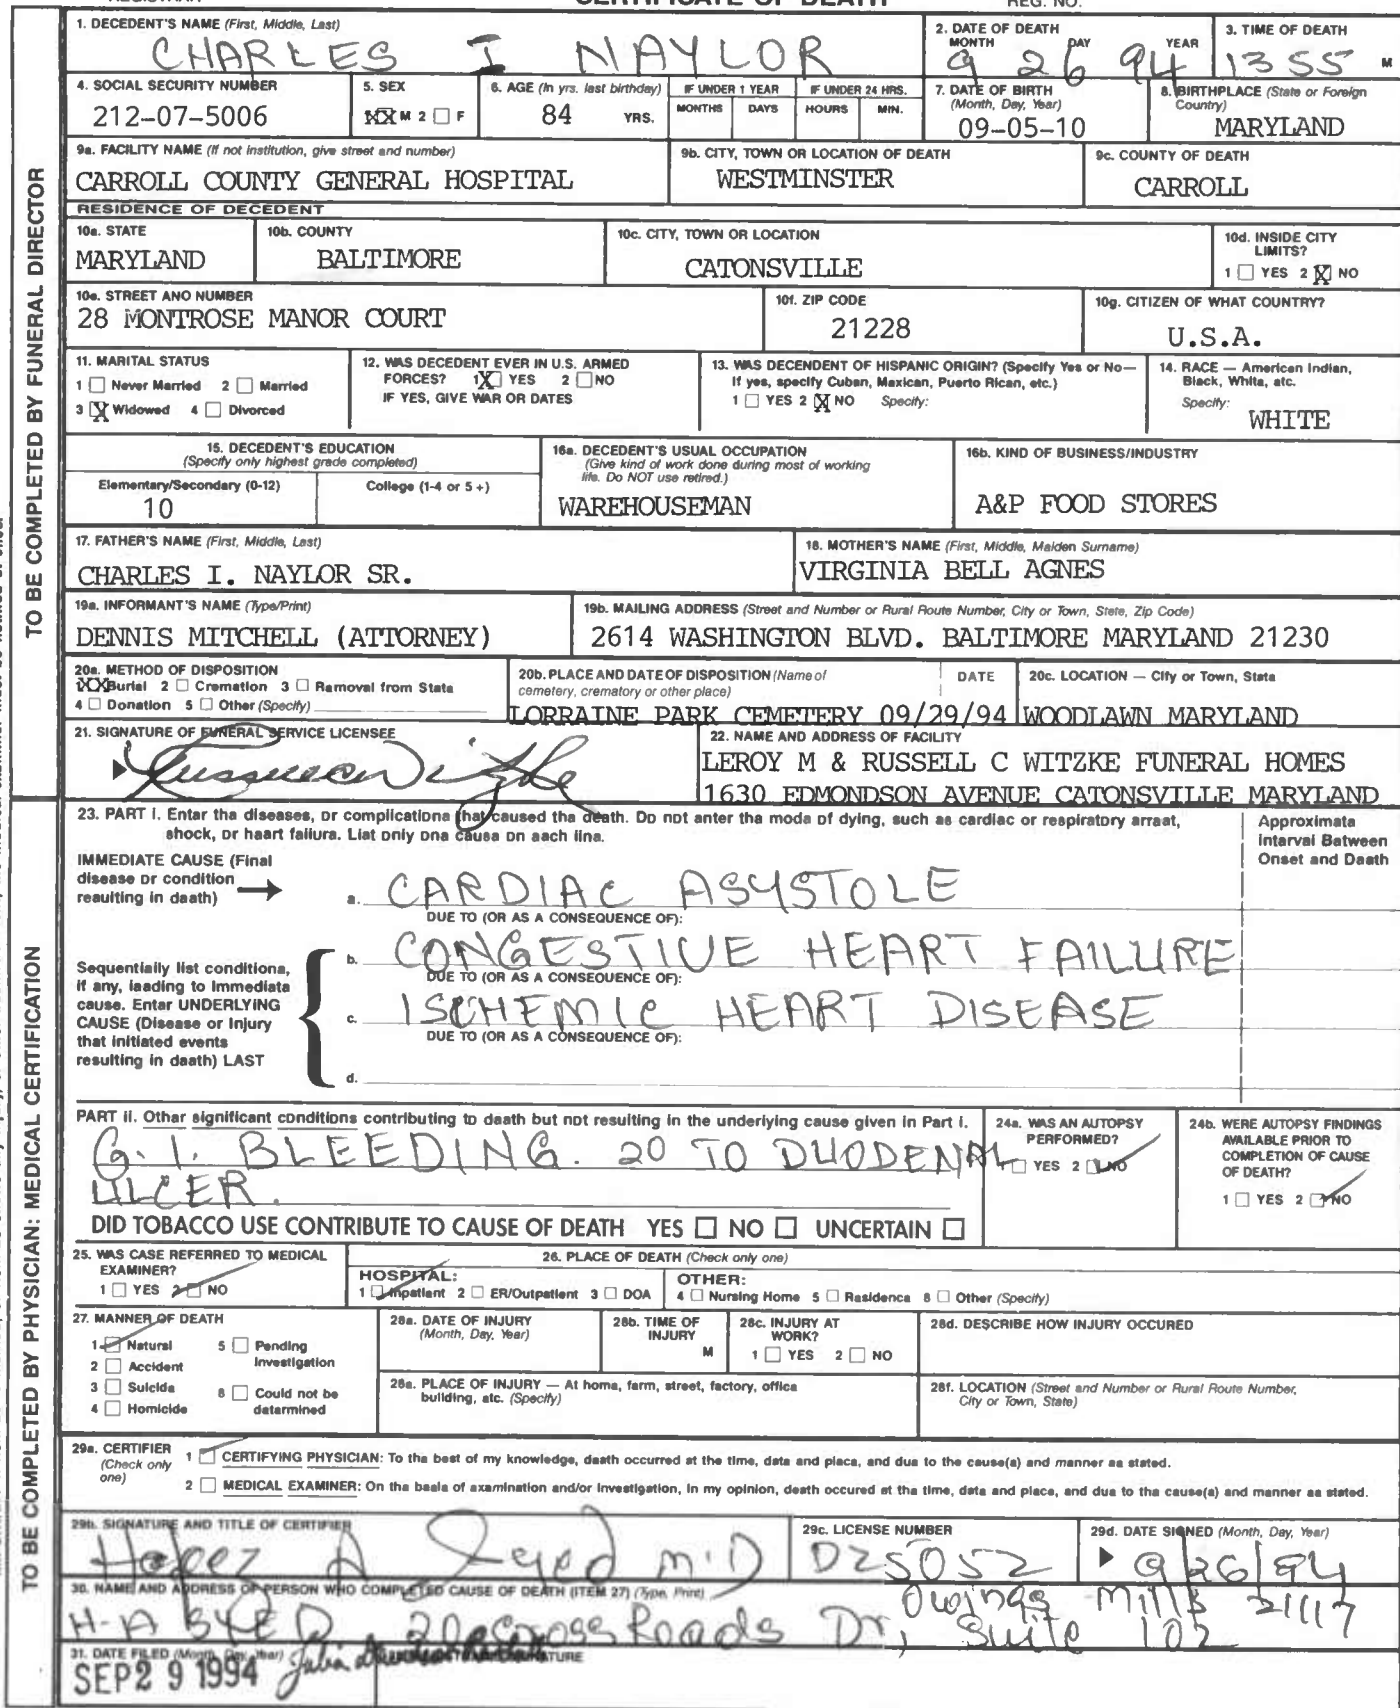 CERTIFICATE OF DEATH
REG. NO.
1. DECEDENT'S NAME (First, Middle, Last)
CHARLES I NAYLOR
2. DATE OF DEATH
MONTH DAY YEAR
9 26 94
3. TIME OF DEATH
1355 M
4. SOCIAL SECURITY NUMBER
212-07-5006
5. SEX
XX M 2 F
6. AGE (In yrs. last birthday)
84 YRS.
IF UNDER 1 YEAR
MONTHS DAYS
IF UNDER 24 HRS.
HOURS MIN.
7. DATE OF BIRTH
(Month, Day, Year)
09-05-10
8. BIRTHPLACE (State or Foreign
Country)
MARYLAND
9a. FACILITY NAME (If not institution, give street and number)
CARROLL COUNTY GENERAL HOSPITAL
9b. CITY, TOWN OR LOCATION OF DEATH
WESTMINSTER
9c. COUNTY OF DEATH
CARROLL
RESIDENCE OF DECEDENT
10a. STATE
MARYLAND
10b. COUNTY
BALTIMORE
10c. CITY, TOWN OR LOCATION
CATONSVILLE
10d. INSIDE CITY
LIMITS?
1 YES 2 X NO
10e. STREET AND NUMBER
28 MONTROSE MANOR COURT
10f. ZIP CODE
21228
10g. CITIZEN OF WHAT COUNTRY?
U.S.A.
11. MARITAL STATUS
1 Never Married 2 Married
3 X Widowed 4 Divorced
12. WAS DECEDENT EVER IN U.S. ARMED
FORCES? 1 X YES 2 NO
IF YES, GIVE WAR OR DATES
13. WAS DECENDENT OF HISPANIC ORIGIN? (Specify Yes or No—
If yes, specify Cuban, Mexican, Puerto Rican, etc.)
1 YES 2 X NO Specify:
14. RACE — American Indian,
Black, White, etc.
Specify:
WHITE
15. DECEDENT'S EDUCATION
(Specify only highest grade completed)
Elementary/Secondary (0-12)
10
College (1-4 or 5 +)
16a. DECEDENT'S USUAL OCCUPATION
(Give kind of work done during most of working
life. Do NOT use retired.)
WAREHOUSEMAN
16b. KIND OF BUSINESS/INDUSTRY
A&P FOOD STORES
17. FATHER'S NAME (First, Middle, Last)
CHARLES I. NAYLOR SR.
18. MOTHER'S NAME (First, Middle, Maiden Surname)
VIRGINIA BELL AGNES
19a. INFORMANT'S NAME (Type/Print)
DENNIS MITCHELL (ATTORNEY)
19b. MAILING ADDRESS (Street and Number or Rural Route Number, City or Town, State, Zip Code)
2614 WASHINGTON BLVD. BALTIMORE MARYLAND 21230
20a. METHOD OF DISPOSITION
XX Burial 2 Cremation 3 Removal from State
4 Donation 5 Other (Specify)
20b. PLACE AND DATE OF DISPOSITION (Name of
cemetery, crematory or other place)
DATE
LORRAINE PARK CEMETERY 09/29/94
20c. LOCATION — City or Town, State
WOODLAWN MARYLAND
21. SIGNATURE OF FUNERAL SERVICE LICENSEE
22. NAME AND ADDRESS OF FACILITY
LEROY M & RUSSELL C WITZKE FUNERAL HOMES
1630 EDMONDSON AVENUE CATONSVILLE MARYLAND
TO BE COMPLETED BY FUNERAL DIRECTOR
23. PART I. Enter the diseases, or complications that caused the death. Do not enter the mode of dying, such as cardiac or respiratory arrest,
shock, or heart failure. List only one cause on each line.
Approximate
Interval Between
Onset and Death
IMMEDIATE CAUSE (Final
disease or condition
resulting in death)
a. CARDIAC ASYSTOLE
DUE TO (OR AS A CONSEQUENCE OF):
b. CONGESTIVE HEART FAILURE
DUE TO (OR AS A CONSEQUENCE OF):
c. ISCHEMIC HEART DISEASE
DUE TO (OR AS A CONSEQUENCE OF):
d.
Sequentially list conditions,
if any, leading to immediate
cause. Enter UNDERLYING
CAUSE (Disease or injury
that initiated events
resulting in death) LAST
PART II. Other significant conditions contributing to death but not resulting in the underlying cause given in Part I.
G.I. BLEEDING. 20 TO DUODENAL
ULCER.
DID TOBACCO USE CONTRIBUTE TO CAUSE OF DEATH YES NO UNCERTAIN
24a. WAS AN AUTOPSY
PERFORMED?
1 YES 2 NO
24b. WERE AUTOPSY FINDINGS
AVAILABLE PRIOR TO
COMPLETION OF CAUSE
OF DEATH?
1 YES 2 NO
25. WAS CASE REFERRED TO MEDICAL
EXAMINER?
1 YES 2 NO
26. PLACE OF DEATH (Check only one)
HOSPITAL:
1 Inpatient 2 ER/Outpatient 3 DOA
OTHER:
4 Nursing Home 5 Residence 6 Other (Specify)
27. MANNER OF DEATH
1 Natural 5 Pending
Investigation
2 Accident
3 Suicide 6 Could not be
determined
4 Homicide
28a. DATE OF INJURY
(Month, Day, Year)
28b. TIME OF
INJURY
M
28c. INJURY AT
WORK?
1 YES 2 NO
28d. DESCRIBE HOW INJURY OCCURED
28e. PLACE OF INJURY — At home, farm, street, factory, office
building, etc. (Specify)
28f. LOCATION (Street and Number or Rural Route Number,
City or Town, State)
29a. CERTIFIER
(Check only
one)
1 CERTIFYING PHYSICIAN: To the best of my knowledge, death occurred at the time, date and place, and due to the cause(s) and manner as stated.
2 MEDICAL EXAMINER: On the basis of examination and/or investigation, in my opinion, death occured at the time, date and place, and due to the cause(s) and manner as stated.
29b. SIGNATURE AND TITLE OF CERTIFIER
Hafeez A Syed M.D
29c. LICENSE NUMBER
D25052
29d. DATE SIGNED (Month, Day, Year)
9/26/94
30. NAME AND ADDRESS OF PERSON WHO COMPLETED CAUSE OF DEATH (ITEM 27) (Type, Print)
Owings Mills 21117
H-A SYED Cross Roads Dr, Suite 102
31. DATE FILED (Month, Day, Year)
SEP 29 1994
TO BE COMPLETED BY PHYSICIAN: MEDICAL CERTIFICATION